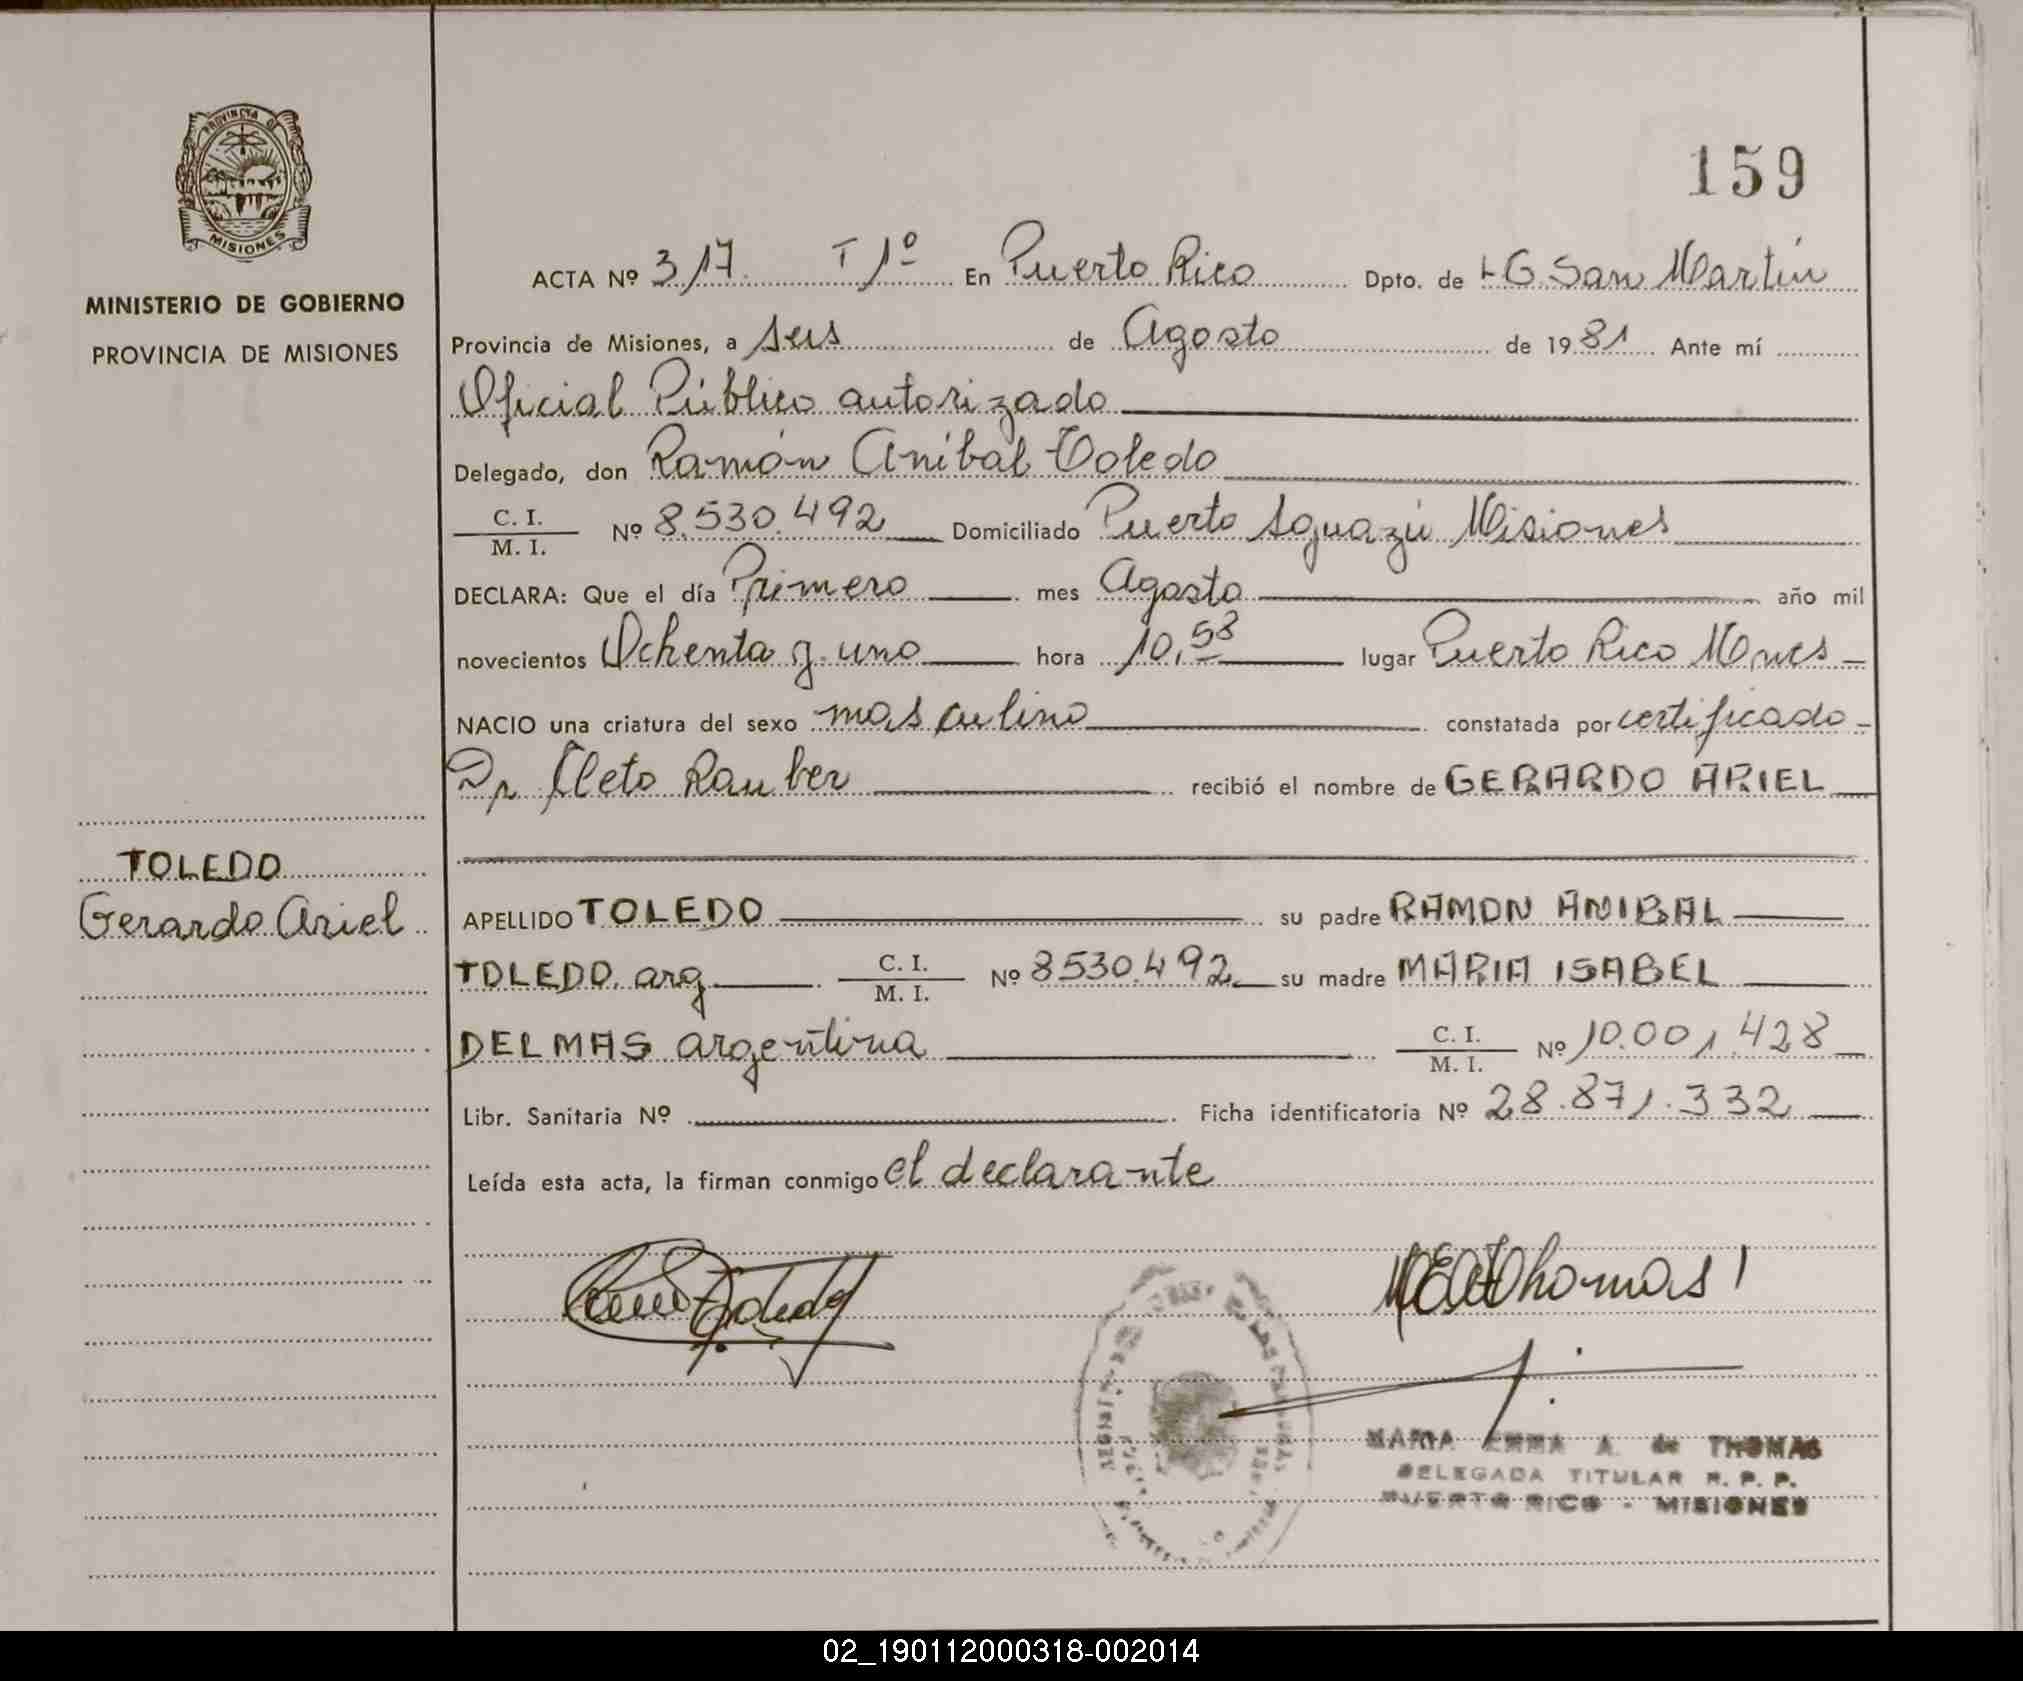 PROVINCIA DE
MISIONES
MINISTERIO DE GOBIERNO
PROVINCIA DE MISIONES
TOLEDO
Gerardo Ariel
159
ACTA Nº 317. T 1º En Puerto Rico Dpto. de LG San Martín
Provincia de Misiones, a seis de Agosto de 1981 Ante mí
Oficial Público autorizado
Delegado, don Ramón Aníbal Toledo
C. I. / M. I. Nº 8.530.492 Domiciliado Puerto Iguazú Misiones
DECLARA: Que el día Primero mes Agosto año mil
novecientos Ochenta y uno hora 10,58 lugar Puerto Rico Mnes
NACIO una criatura del sexo masculino constatada por certificado
Dr. Cleto Rauber recibió el nombre de GERARDO ARIEL
APELLIDO TOLEDO su padre RAMON ANIBAL
TOLEDO, arg C. I. / M. I. Nº 8530.492 su madre MARIA ISABEL
DELMAS argentina C. I. / M. I. Nº 10.001.428
Libr. Sanitaria Nº Ficha identificatoria Nº 28.871.332
Leída esta acta, la firman conmigo el declarante
MARIA EMMA A. de THOMAS
DELEGADA TITULAR R. P. P.
PUERTO RICO - MISIONES
02_190112000318-002014